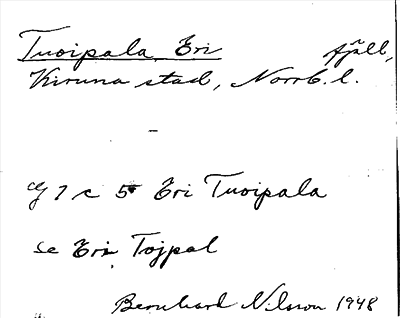 Tuoipala, Eri fjäll,
Kiruna stad, Norrb. l.
7 c 5 Eri Tuoipala
se Eri Tojpal
Bernhard Nilsson 1948